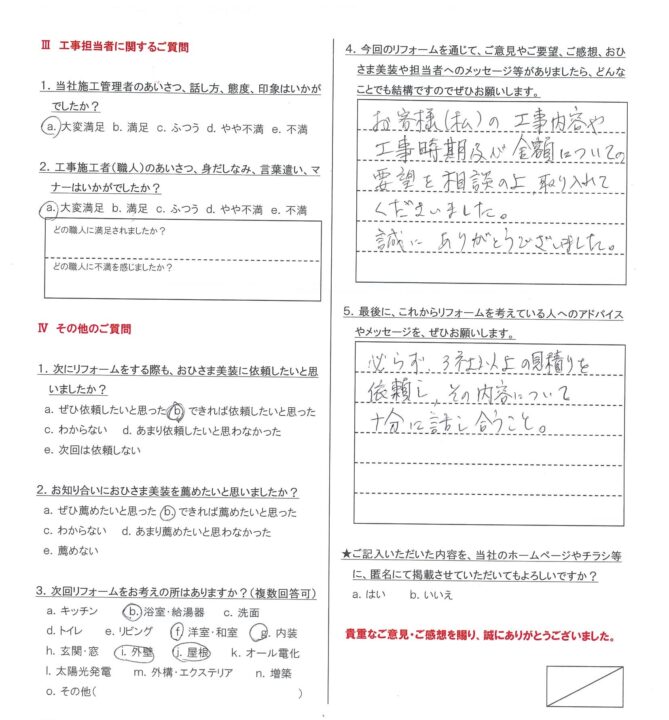 Ⅲ 工事担当者に関するご質問
1. 当社施工管理者のあいさつ、話し方、態度、印象はいかが
でしたか？
a. 大変満足 b. 満足 c. ふつう d. やや不満 e. 不満
2. 工事施工者(職人)のあいさつ、身だしなみ、言葉遣い、マ
ナーはいかがでしたか？
a. 大変満足 b. 満足 c. ふつう d. やや不満 e. 不満
どの職人に満足されましたか？
どの職人に不満を感じましたか？
Ⅳ その他のご質問
1. 次にリフォームをする際も、おひさま美装に依頼したいと思
いましたか？
a. ぜひ依頼したいと思った b. できれば依頼したいと思った
c. わからない d. あまり依頼したいと思わなかった
e. 次回は依頼しない
2. お知り合いにおひさま美装を薦めたいと思いましたか？
a. ぜひ薦めたいと思った b. できれば薦めたいと思った
c. わからない d. あまり薦めたいと思わなかった
e. 薦めない
3. 次回リフォームをお考えの所はありますか？(複数回答可)
a. キッチン b. 浴室・給湯器 c. 洗面
d. トイレ e. リビング f. 洋室・和室 g. 内装
h. 玄関・窓 i. 外壁 j. 屋根 k. オール電化
l. 太陽光発電 m. 外構・エクステリア n. 増築
o. その他( )
4. 今回のリフォームを通じて、ご意見やご要望、ご感想、おひ
さま美装や担当者へのメッセージ等がありましたら、どんな
ことでも結構ですのでぜひお願いします。
お客様(私)の工事内容や
工事時期及び金額についての
要望を相談の上、取り入れて
くださいました。
誠にありがとうございました。
5. 最後に、これからリフォームを考えている人へのアドバイス
やメッセージを、ぜひお願いします。
必らず、3社以上の見積りを
依頼し、その内容について
十分に話し合うこと。
★ご記入いただいた内容を、当社のホームページやチラシ等
に、匿名にて掲載させていただいてもよろしいですか？
a. はい b. いいえ
貴重なご意見・ご感想を賜り、誠にありがとうございました。